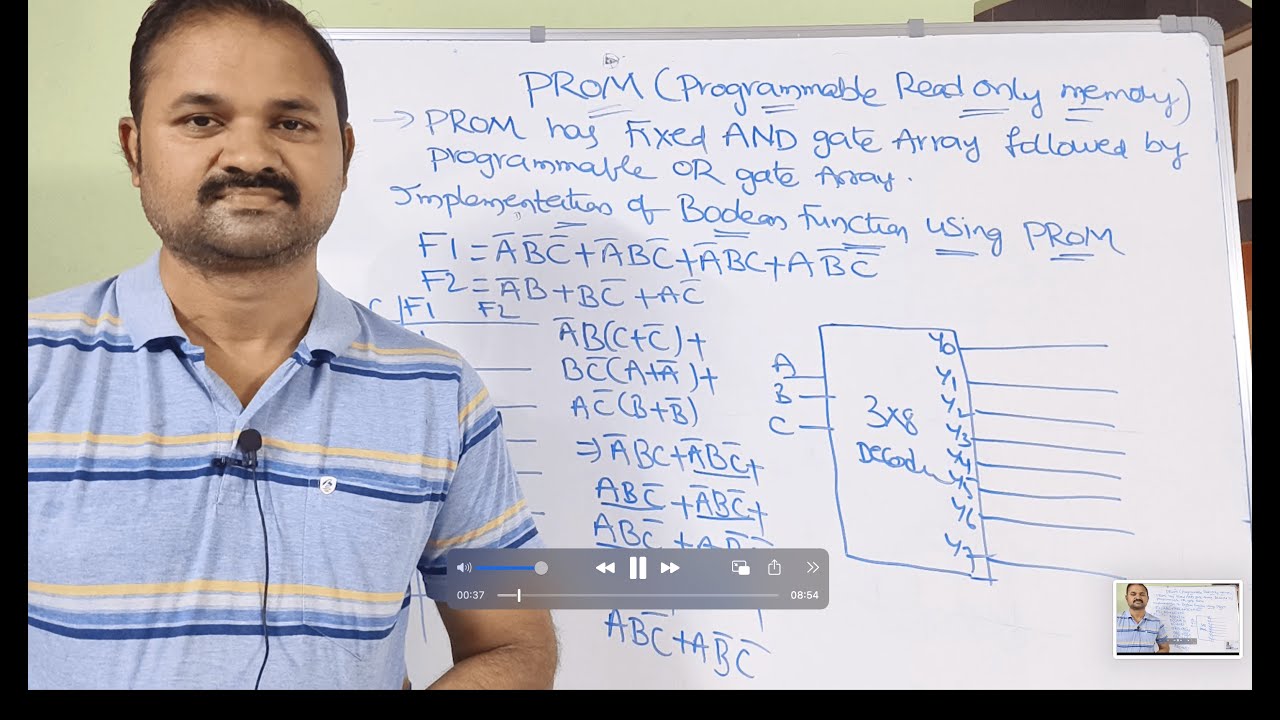 PROM (Programmable Read only memory)
→ PROM has Fixed AND gate Array followed by
programmable OR gate Array.
Implementation of Boolean Function using PROM
F1 = A̅B̅C̅ + A̅BC̅ + A̅BC + AB̅C̅
F2 = A̅B + BC̅ + AC̅
C F1 F2
A̅B(C+C̅)+
BC̅(A+A̅)+
AC̅(B+B̅)
⇒ A̅BC + A̅BC̅ +
ABC̅ + A̅BC̅ +
ABC̅ +
ABC̅ + AB̅C̅
A
B
C
3x8
Decoder
Y0
Y1
Y2
Y3
Y4
Y5
Y6
Y7
00:37
08:54